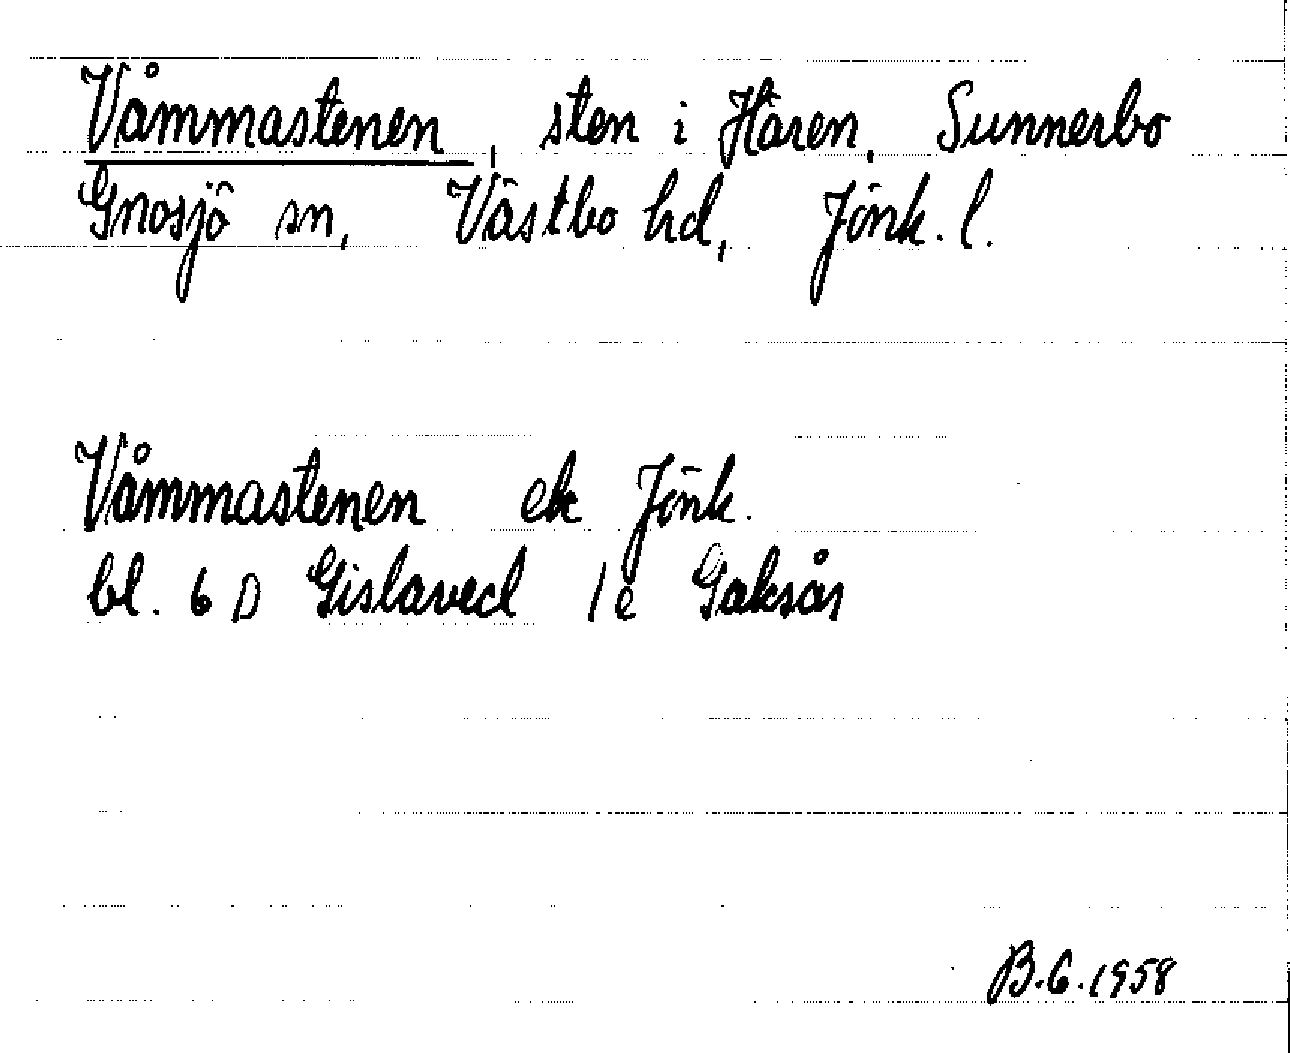 Våmmastenen, sten i Hären, Sunnerbo
Gnosjö sn, Västbo hd, Jönk. l.
Våmmastenen ek Jönk.
bl. 6 D Gislaved 1e Gaksås
B.G.1958